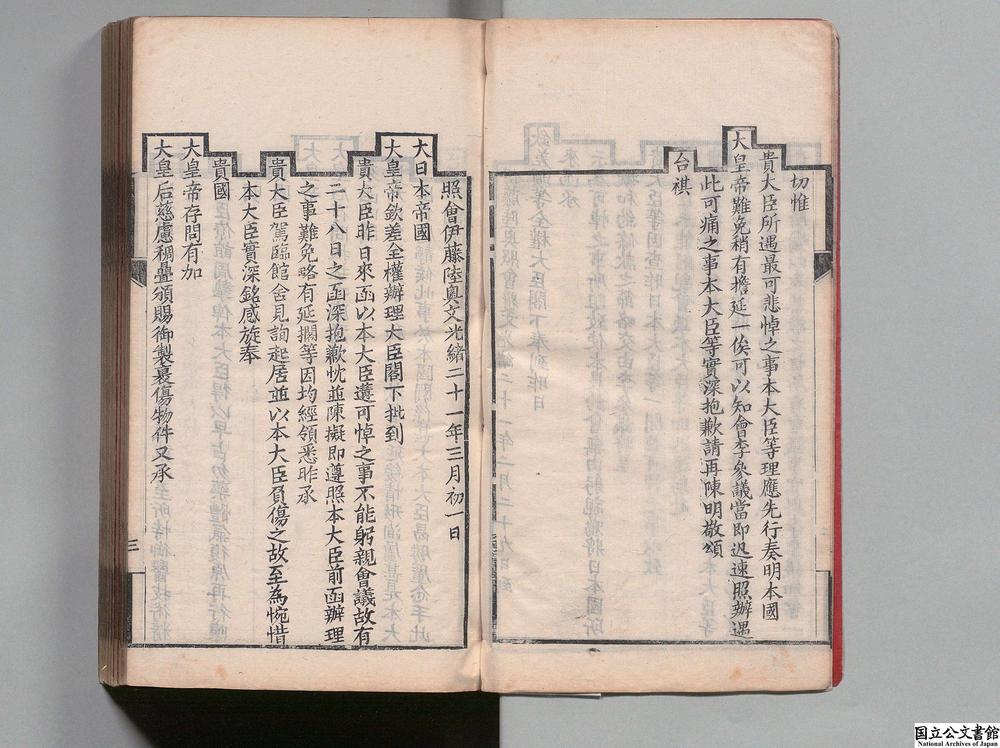 切惟
貴大臣所遇最可悲悼之事本大臣等理應先行奏明本國
大皇帝難免稍有擔延一俟可以知會李參議當即迅速照辦遇
此可痛之事本大臣等實深抱歉請再陳明敬頌
台祺
照會伊藤陸奧文光緒二十一年三月初一日
大日本帝國
大皇帝欽差全權辦理大臣閣下批到
貴大臣昨日來函以本大臣遭可悼之事不能躬親會議故有
二十八日之函深抱歉忱並陳擬即遵照本大臣前函辦理
之事難免略有延擱等因均經領悉昨承
貴大臣駕臨館舍見詢起居並以本大臣負傷之故至為惋惜
本大臣實深銘感旋奉
貴國
大皇帝存問有加
大皇后慈慮稠疊頒賜御製裹傷物件又承
三
国立公文書館
National Archives of Japan